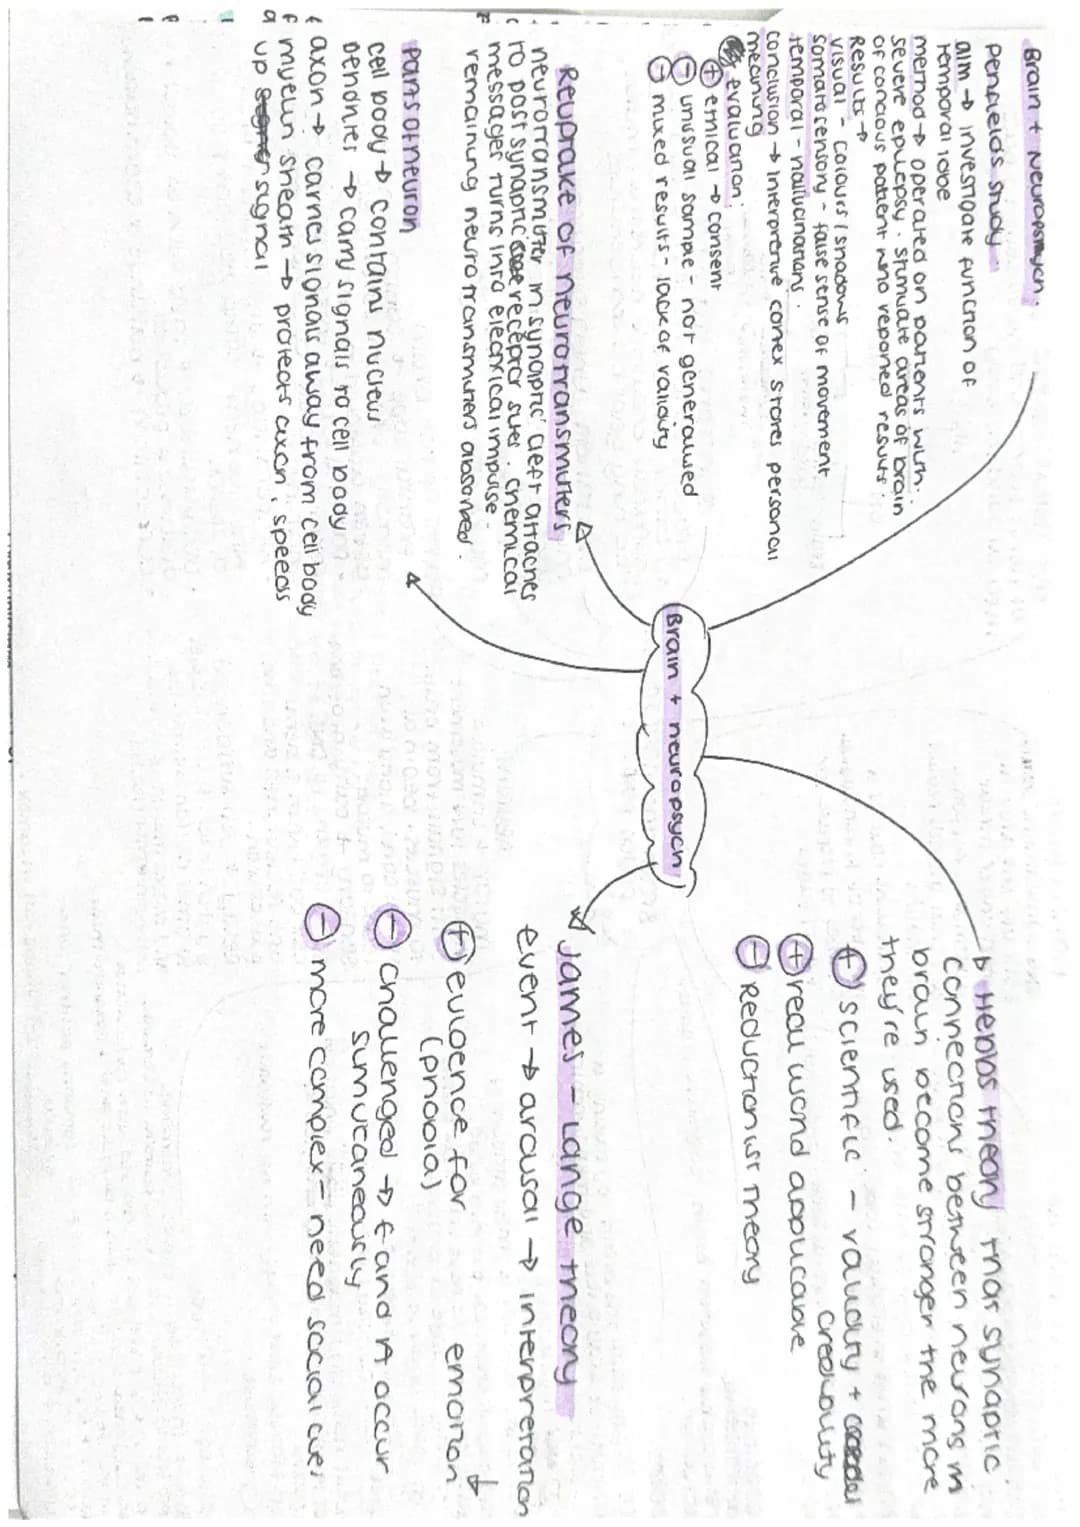 Brain + Neuropsych.
Penfields study:
aim → investigate function of
temporal lobe
method → operated on patients with
severe epilepsy. Stimulate areas of brain
of concious patient who reported results.
Results →
visual - colours / shadows
Somatosensory - false sense of movement
temporal - hallucinations.
Conclusion → Interpretive cortex stores personal
meaning
evaluation:
+ ethical → consent
- unusual sample - not generalised
- mixed results - lack of validity
Reuptake of neurotransmitters
neurotransmitter in synaptic cleft attaches
to post synaptic receptor sites. Chemical
messages turns into electrical impulse.
remaining neurotransmitters absorbed.
Parts of neuron
cell body → contains nucleus
Dendrites → carry signals to cell body
axon → carries signals away from cell body
myelin sheath → protects axon, speeds
up signal
Brain + neuropsych
Hebbs theory that synaptic
connections between neurons in
brain become stronger the more
they're used.
+ scientific - validity +
credibility
+ real world applicable
- Reductionist theory
James - Lange theory
event → arousal → interpretation
↓
emotion
+ evidence for
(phobia)
- challenged → E and A occur
simultaneously
- more complex - need social cues